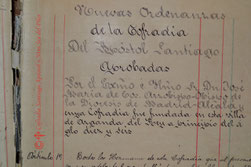 Nuevas Ordenanzas
de la Cofradía
Del Apóstol Santiago
Aprobadas
Por el Exmo e Ilmo Sr Dn José
María de Cos Arzobispo-Obispo de
la Diócesis de Madrid-Alcalá
cuya Cofradía fue fundada en esta villa
de del Rey a principio del si
glo diez y seis
Artículo 1º Todo los Hermanos de esta Cofradía que